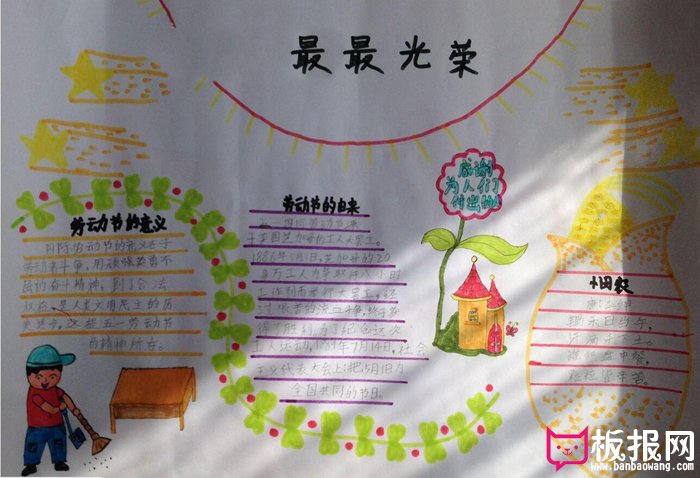 最最光荣
感谢
为人们
付出的人
劳动节的意义
国际劳动节的意义在于
劳动者斗争,用顽强英勇不
屈的奋斗精神,到了合法
权益,是人类文明民主的历
史进步,这是五一劳动节
的精神所在。
劳动节的由来
五一国际劳动节源
于美国芝加哥的工人大罢工。
1886年5月1日,芝加哥的20
多万工人为争取行八小时
工作制而举行大罢工,经
过艰苦的流血斗争,终于获
得了胜利。为了纪念这次
工人运动,1889年7月14日,社会
主义代表大会上:把5月1日为
全国共同的节日。
锄禾日当午,
汗滴禾下土。
谁知盘中餐,
粒粒皆辛苦。
板报网
www.banbaowang.com